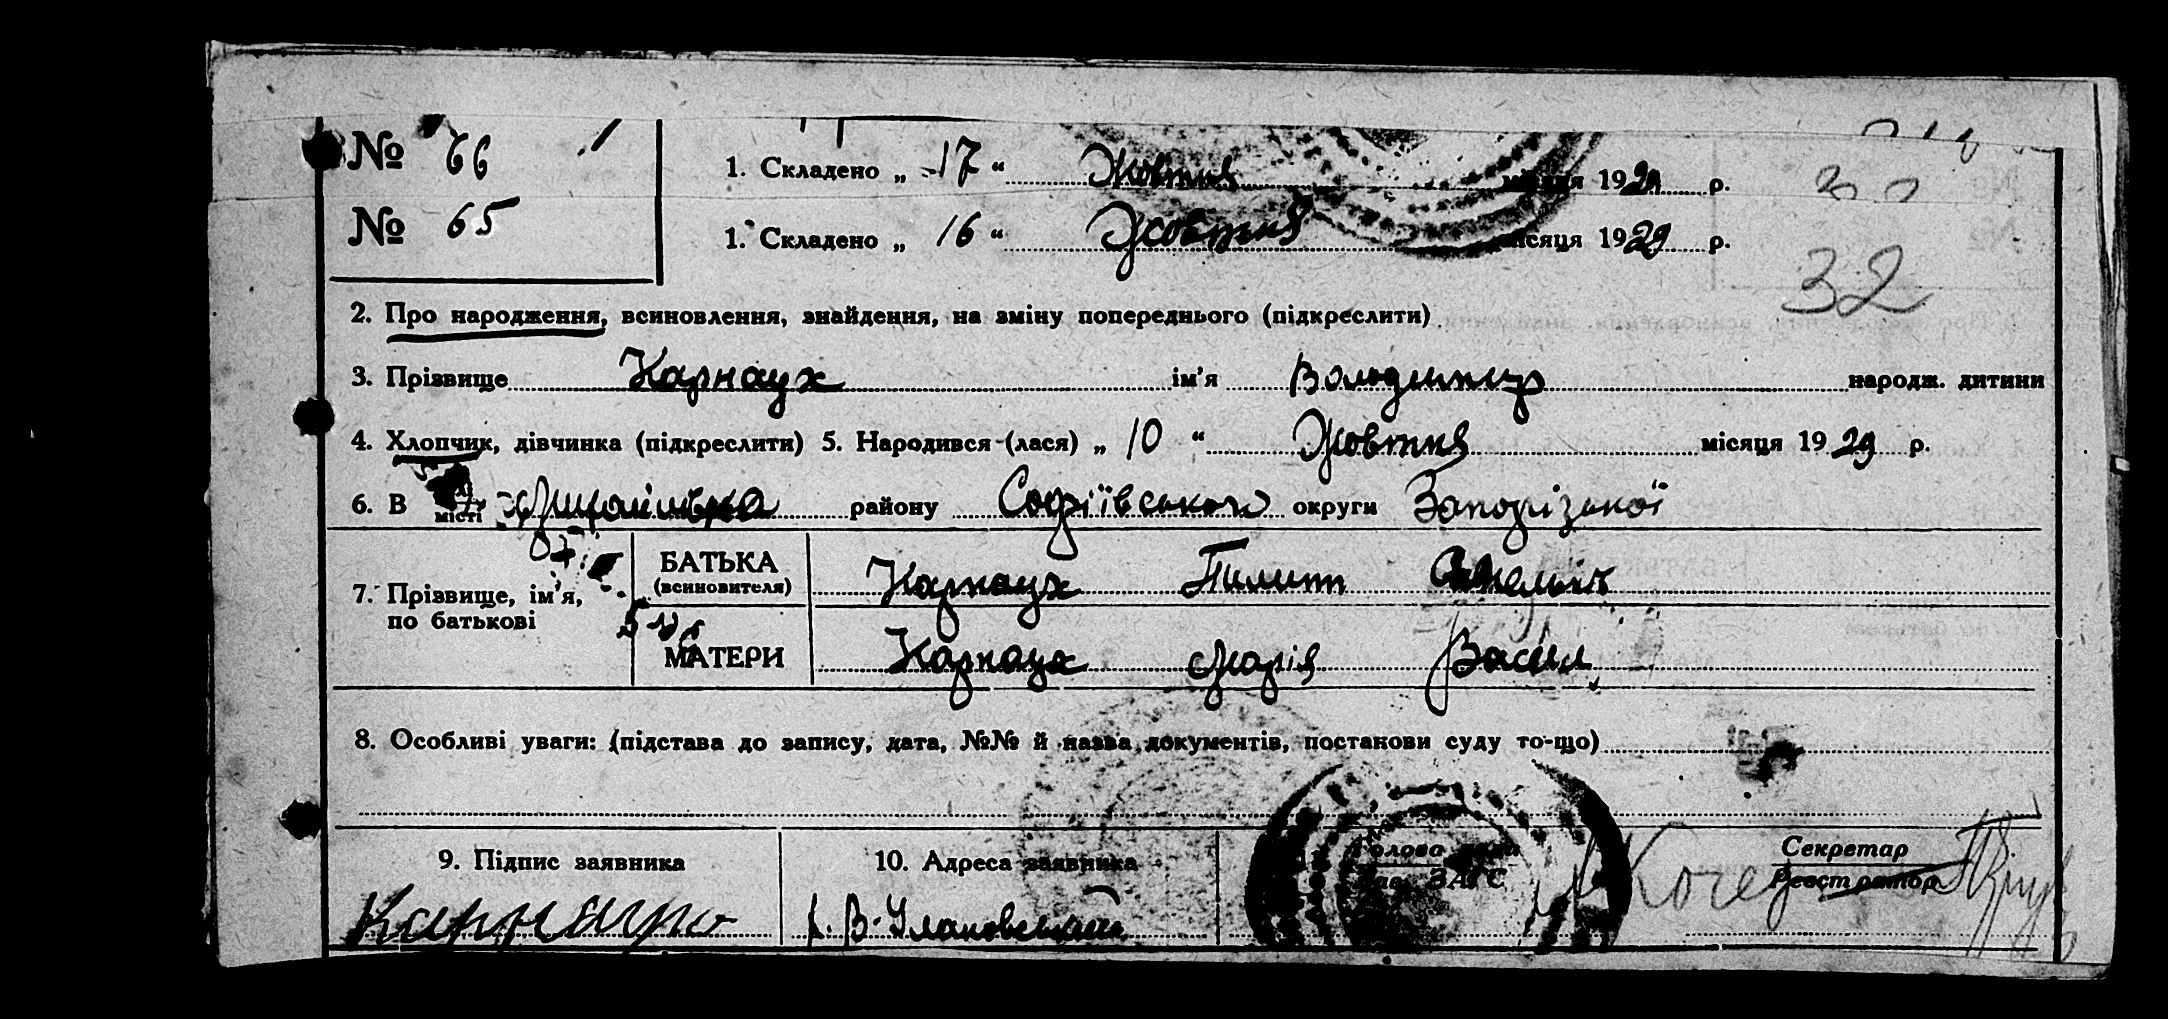 № 66 1. Складено „ 17 “ Жовтня місяця 1929 р. 30
№ 65 1. Складено „ 16 “ Жовтня місяця 1929 р.
32
2. Про народження, всиновлення, знайдення, на зміну попереднього (підкреслити)
3. Прізвище Карнаух ім'я Володимир народж. дитини
4. Хлопчик, дівчинка (підкреслити) 5. Народився-(лася) „ 10 “ Жовтня місяця 1929 р.
6. В місті району Софіївського округи Запорізької
7. Прізвище, ім'я, по батькові
БАТЬКА (всиновителя) Карнаух Пилип
МАТЕРИ Карнаух Марія Васил
8. Особливі уваги: (підстава до запису, дата, №№ й назва документів, постанови суду то-що)
9. Підпис заявника 10. Адреса заявника Голова Секретар
Зав. ЗАГС Реєстратор
В-Улановський